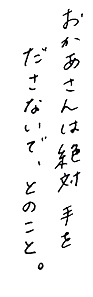 おかあさんは絶対 手を
ださないで、とのこと。